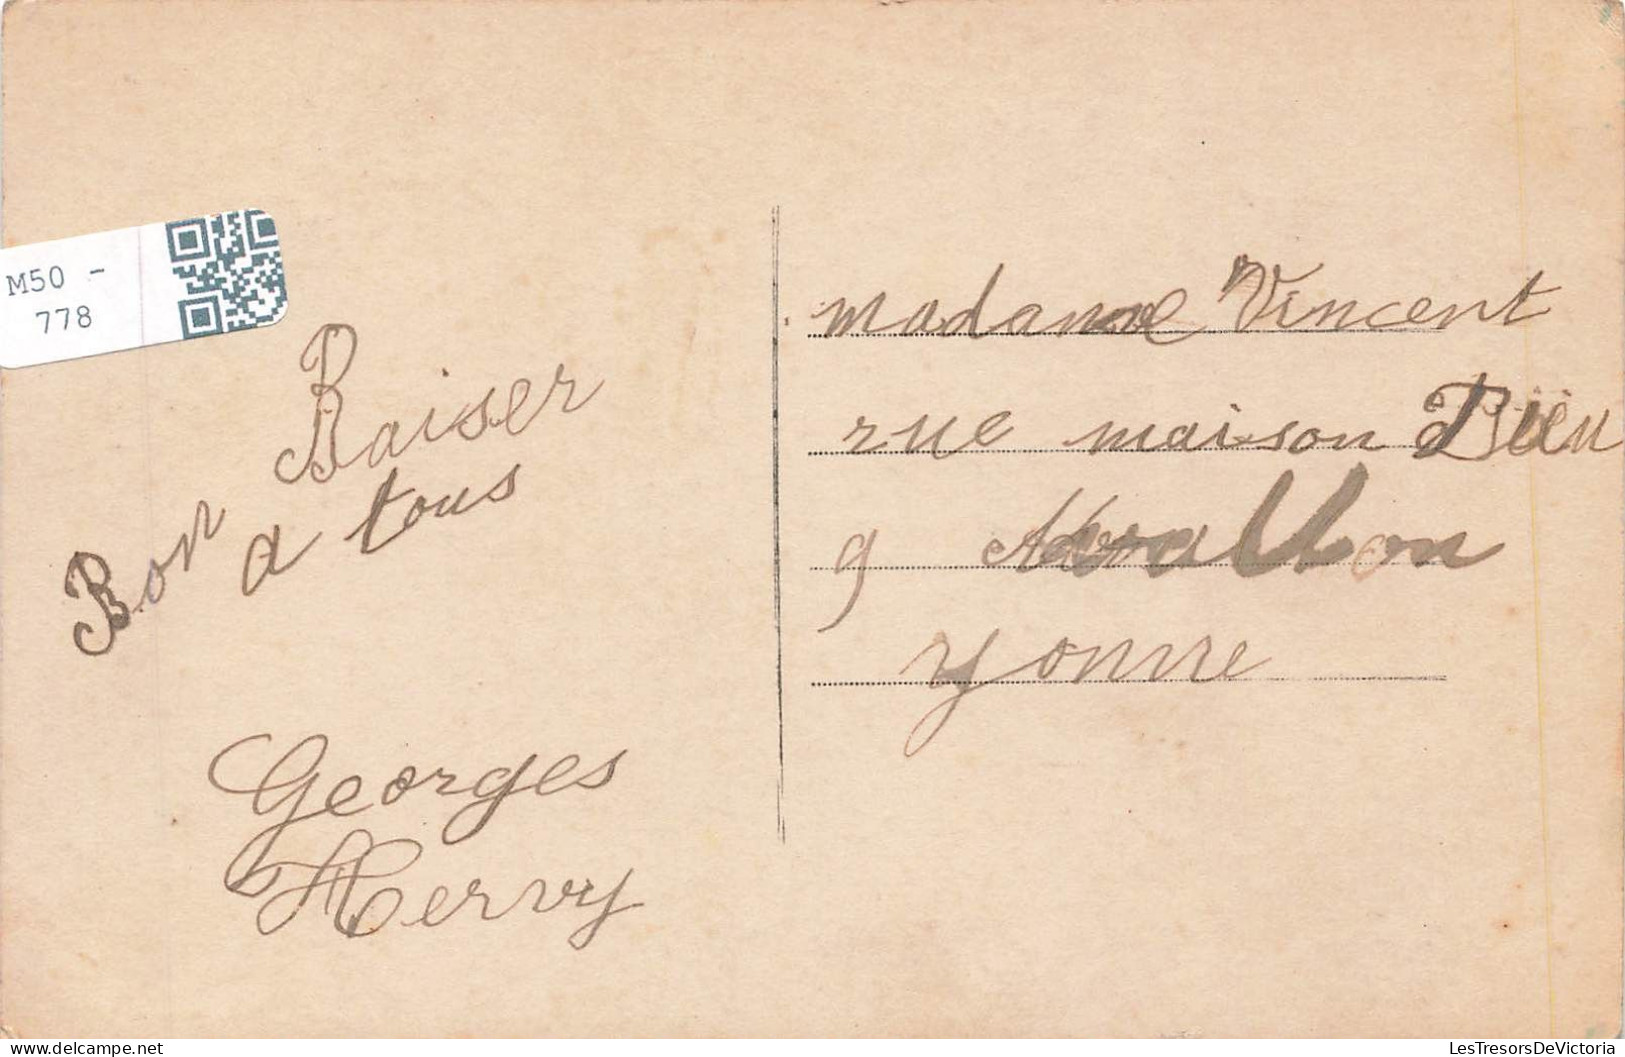 M50 -
778
Bon Baiser
a tous
Georges
Hervy
madame Vincent
rue maison Dieu
9 Avallon
yonne
LesTresorsDeVictoria
delcampe.net